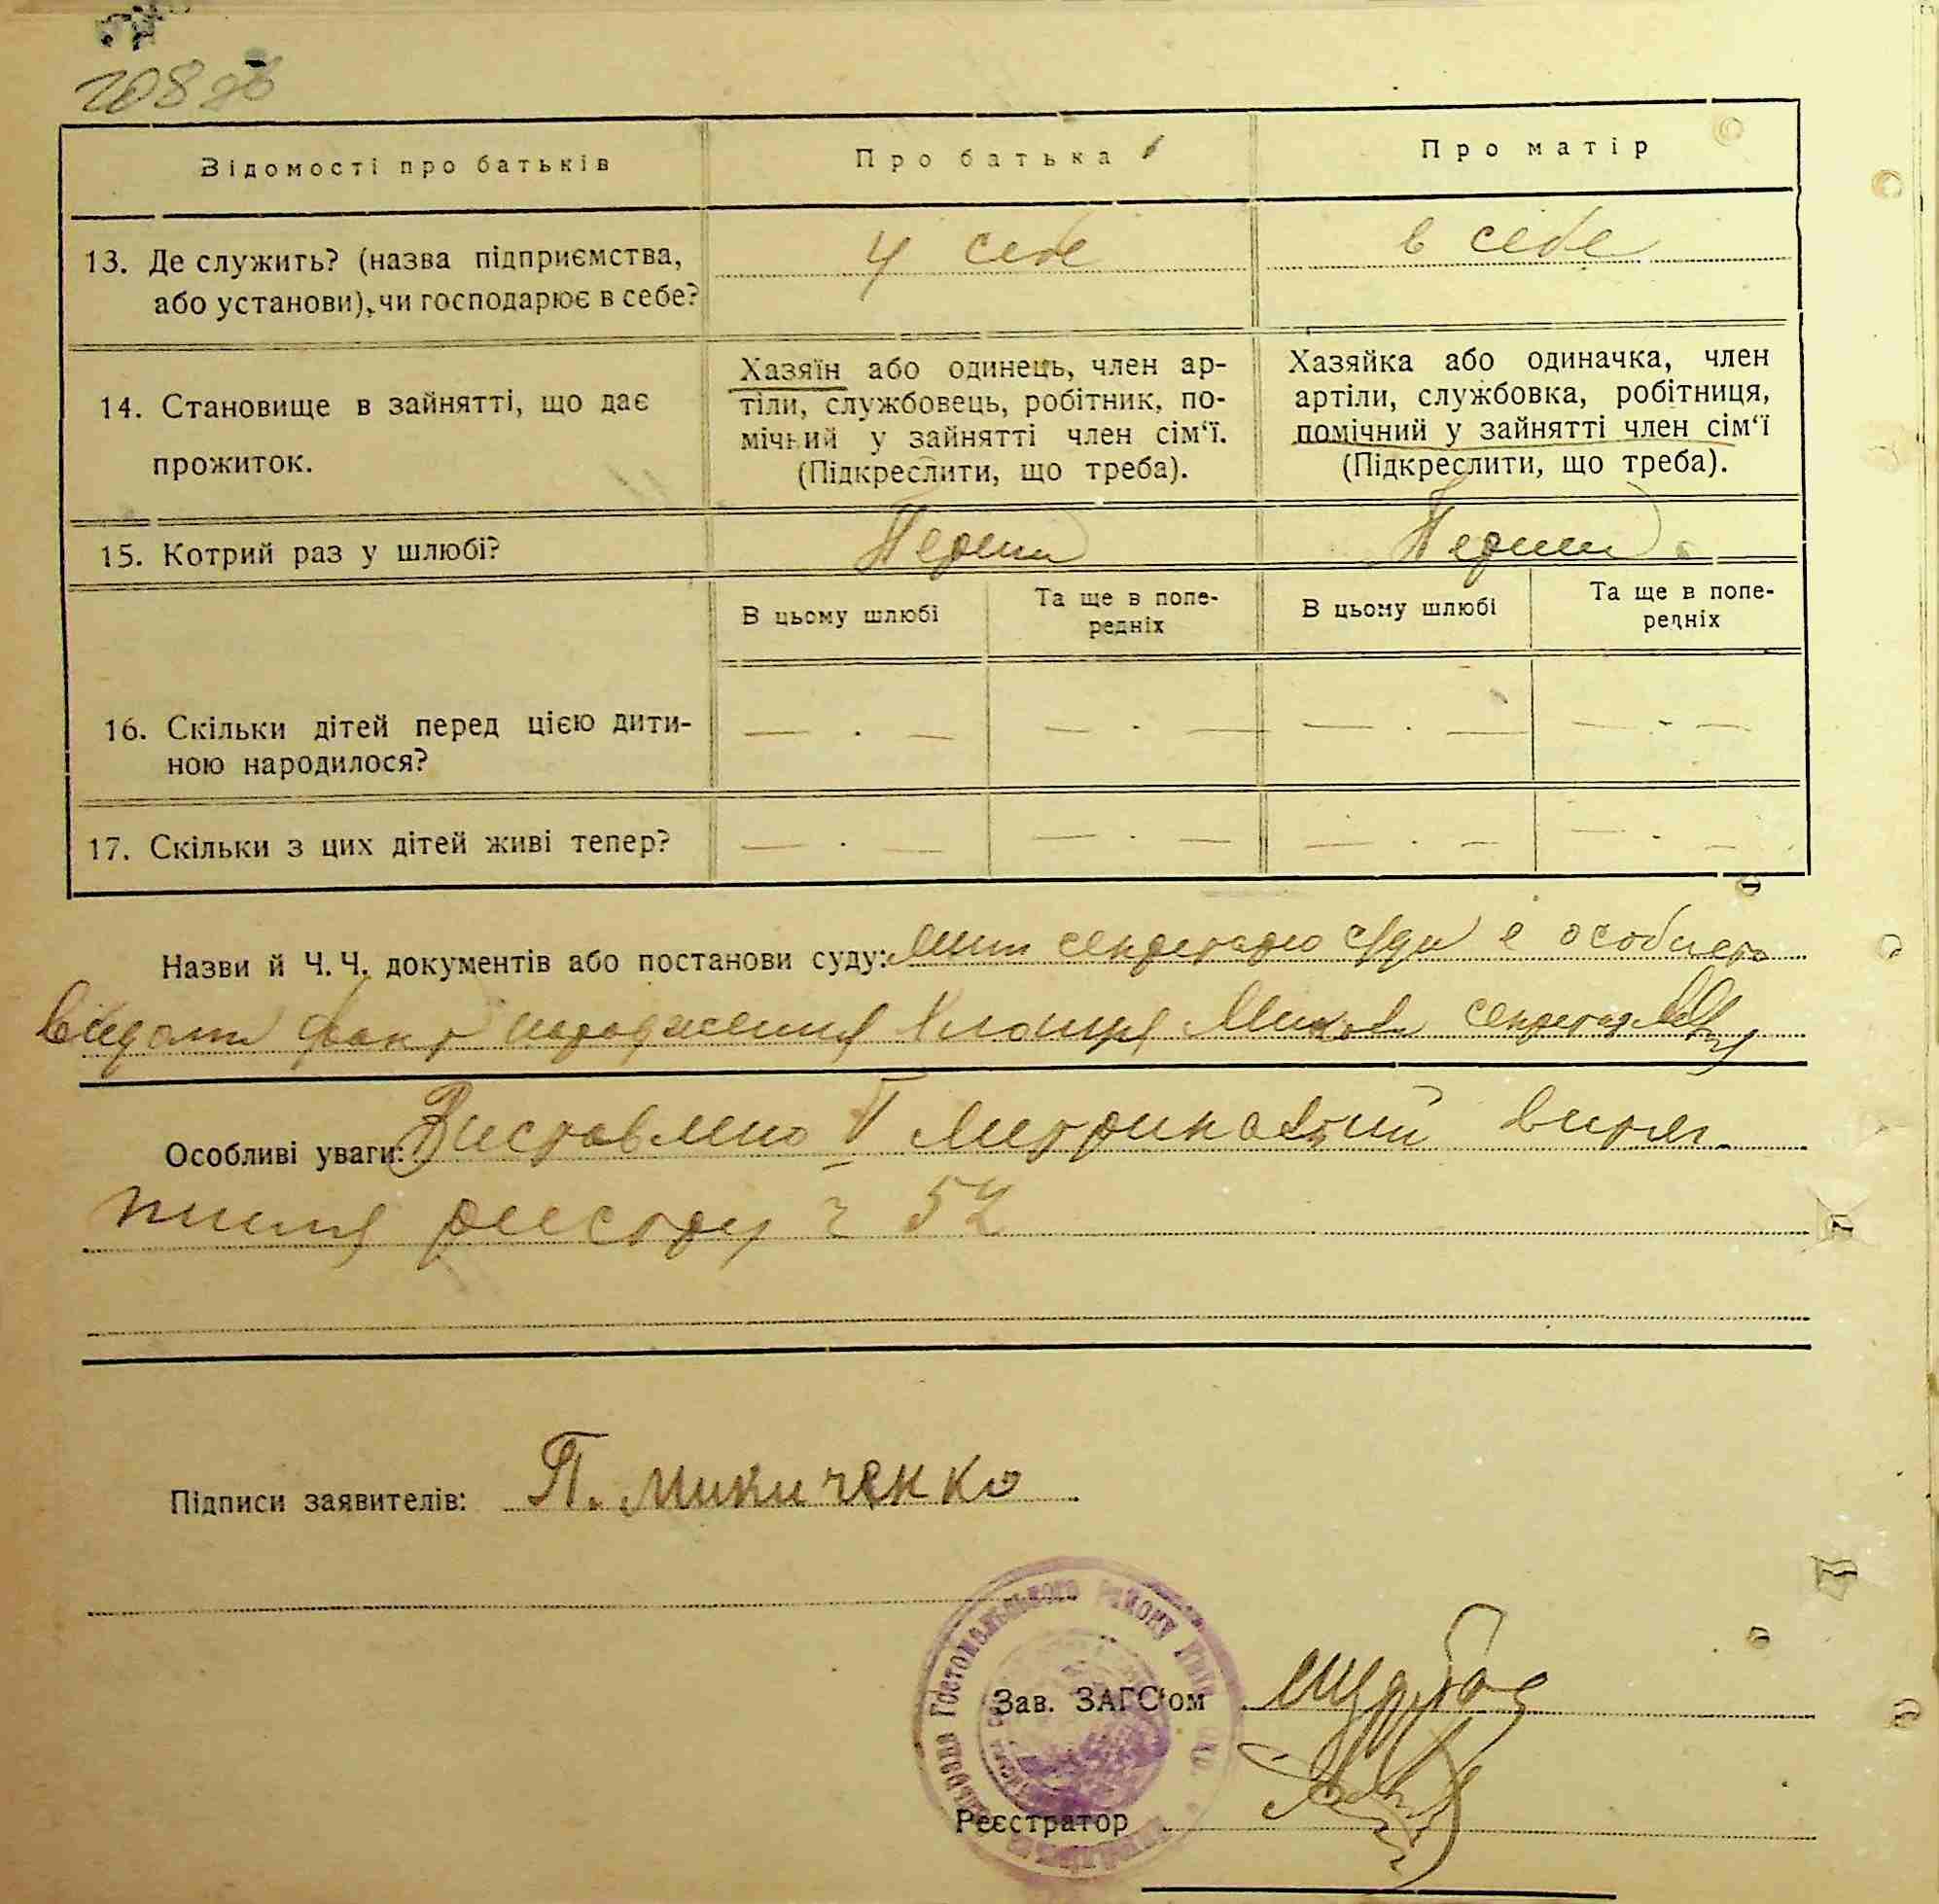 208 зв
Відомості про батьків
Про батька
Про матір
13. Де служить? (назва підприємства,
або установи), чи господарює в себе?
у себе
в себе
14. Становище в зайнятті, що дає
прожиток.
Хазяїн або одинець, член ар-
тіли, службовець, робітник, по-
мічний у зайнятті член сім‘ї.
(Підкреслити, що треба).
Хазяйка або одиначка, член
артіли, службовка, робітниця,
помічний у зайнятті член сім‘ї
(Підкреслити, що треба).
15. Котрий раз у шлюбі?
Перший
Перший
В цьому шлюбі
Та ще в попе-
редніх
В цьому шлюбі
Та ще в попе-
редніх
16. Скільки дітей перед цією дити-
ною народилося?
— · — — · — — · — — · —
17. Скільки з цих дітей живі тепер?
— · — — · — — · — — · —
Назви й Ч. Ч. документів або постанови суду: секретарю є особисто
відомий факт народження секретар
Особливі уваги: Виставлено метрикальний витяг
реєстру ч 52
Підписи заявителів: П. Микиченко
Гостомельського району
Зав. ЗАГС‘ом
Реєстратор